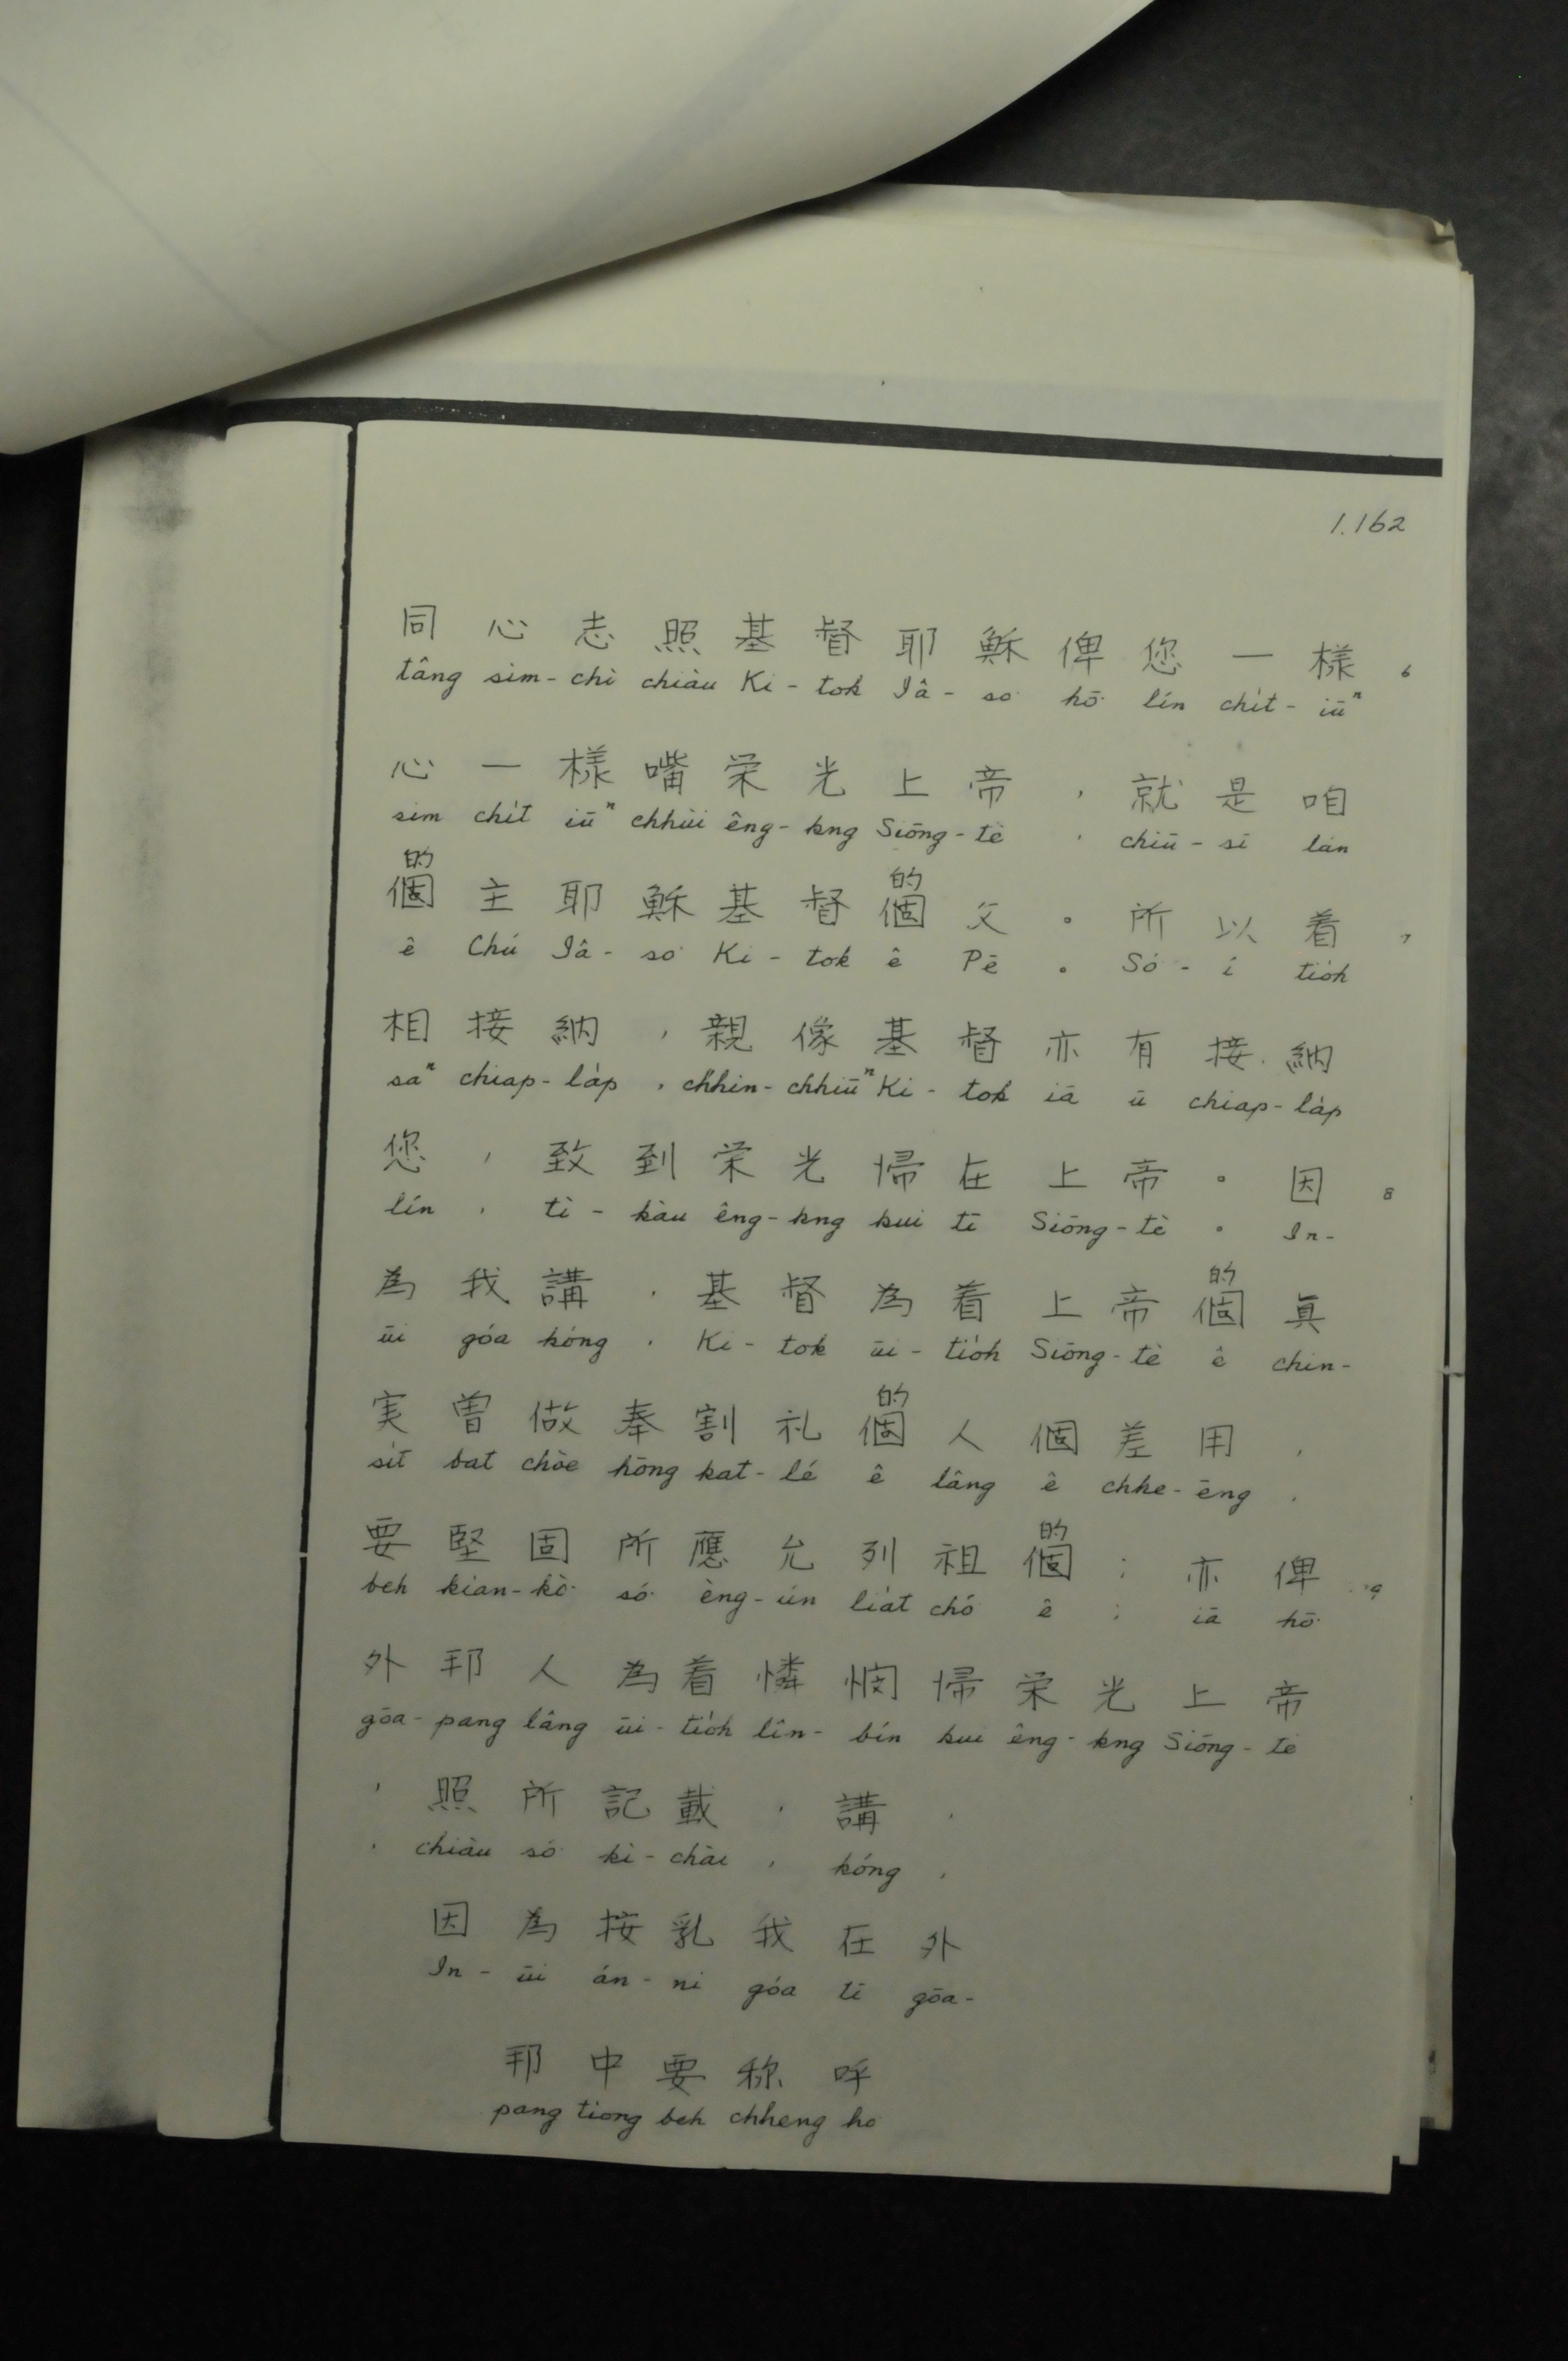 1.162
同心志照基督耶穌俾您一樣 6
tâng sim-chì chiàu Ki-tok Iâ-so͘ hō͘ lín chi̍t-iūⁿ
心一樣嘴栄光上帝，就是咱
sim chi̍t iūⁿ chhùi êng-kng Siōng-tè , chiū-sī lán
的 的
個主耶穌基督個父。所以着 7
ê Chú Iâ-so͘ Ki-tok ê Pē 。 Só͘-í tio̍h
相接納，親像基督亦有接納
saⁿ chiap-la̍p , chhin-chhiūⁿ Ki-tok iā ū chiap-la̍p
您，致到栄光帰在上帝。因 8
lín , tì-kàu êng-kng kui tī Siōng-tè 。 In-
的
為我講，基督為着上帝個真
ūi góa kóng , Ki-tok ūi-tio̍h Siōng-tè ê chin-
的
実曽做奉割礼個人個差用，
si̍t bat chòe hōng kat-lé ê lâng ê chhe-ēng ,
的
要堅固所應允列祖個；亦俾 9
beh kian-kò͘ só͘ èng-ún lia̍t chó͘ ê ; iā hō͘
外邦人為着憐憫帰栄光上帝
gōa-pang lâng ūi-tio̍h lîn-bín kui êng-kng Siōng-tè
，照所記載，講，
, chiàu só͘ kì-chài , kóng ,
因為按乳我在外
In-ūi án-ni góa tī gōa-
邦中要称呼
pang tiong beh chheng ho͘